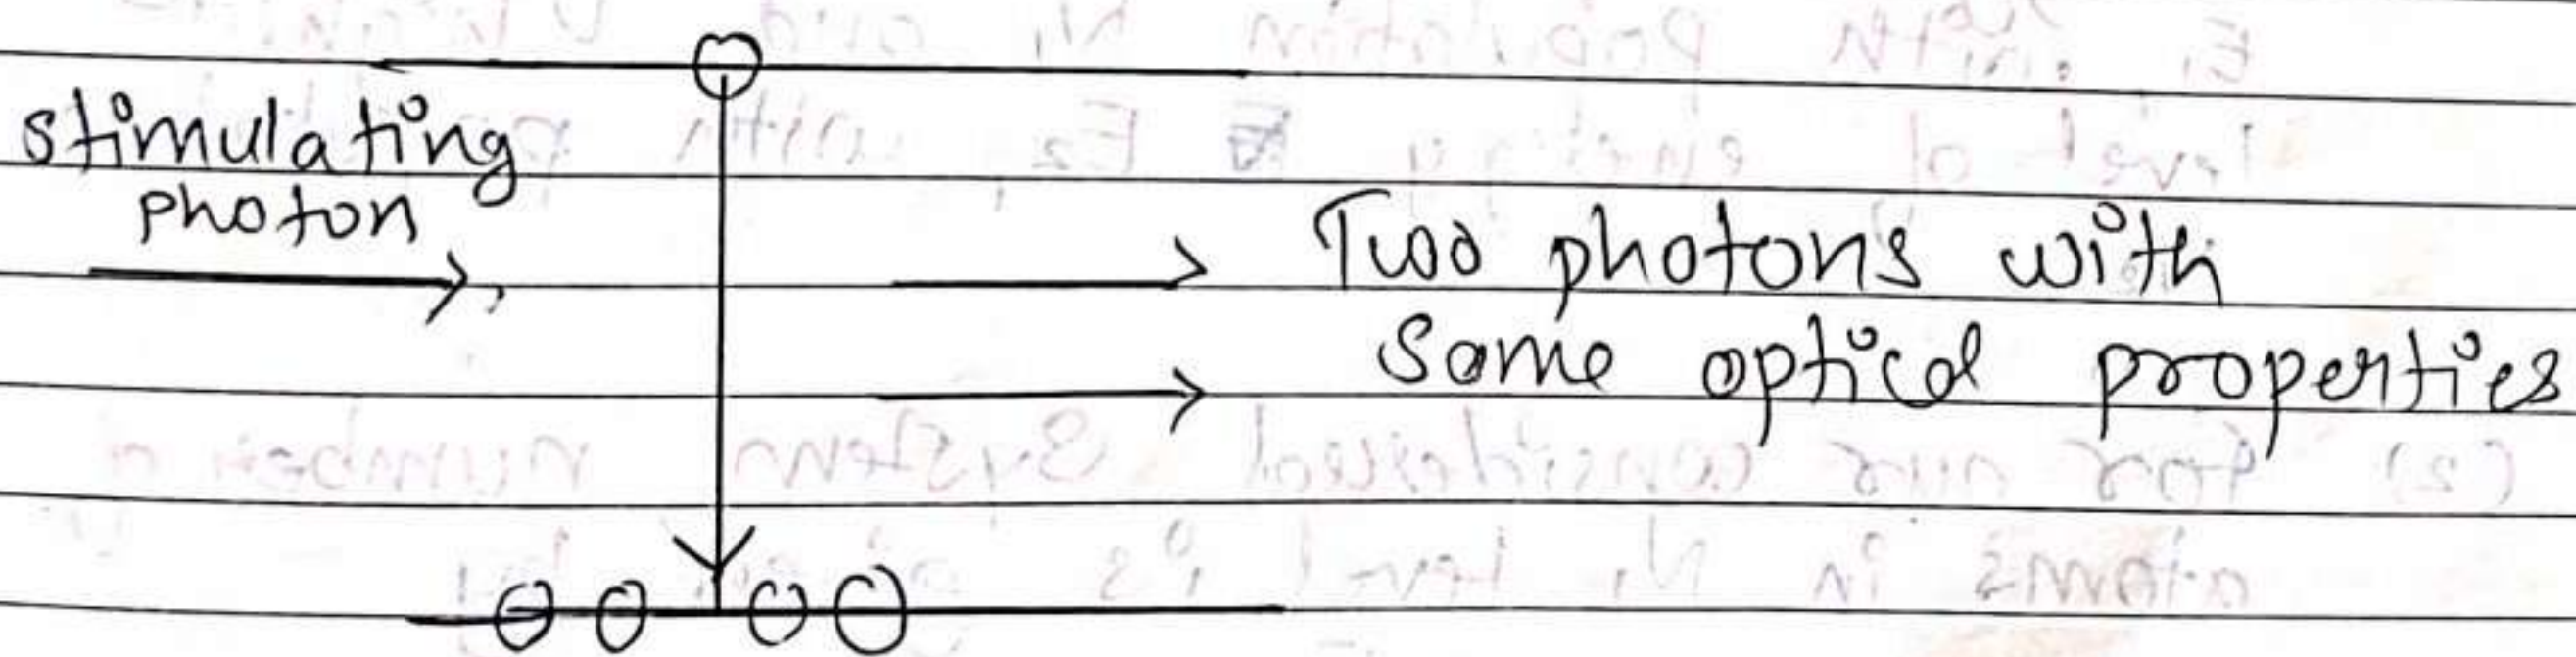 stimulating
photon
Two photons with
Same optical properties